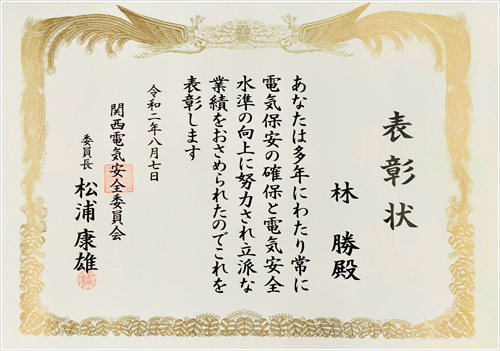 表彰状
林 勝殿
あなたは多年にわたり常に
電気保安の確保と電気安全
水準の向上に努力され立派な
業績をおさめられたのでこれを
表彰します
令和二年八月七日
関西電気安全委員会
委員長 松浦康雄